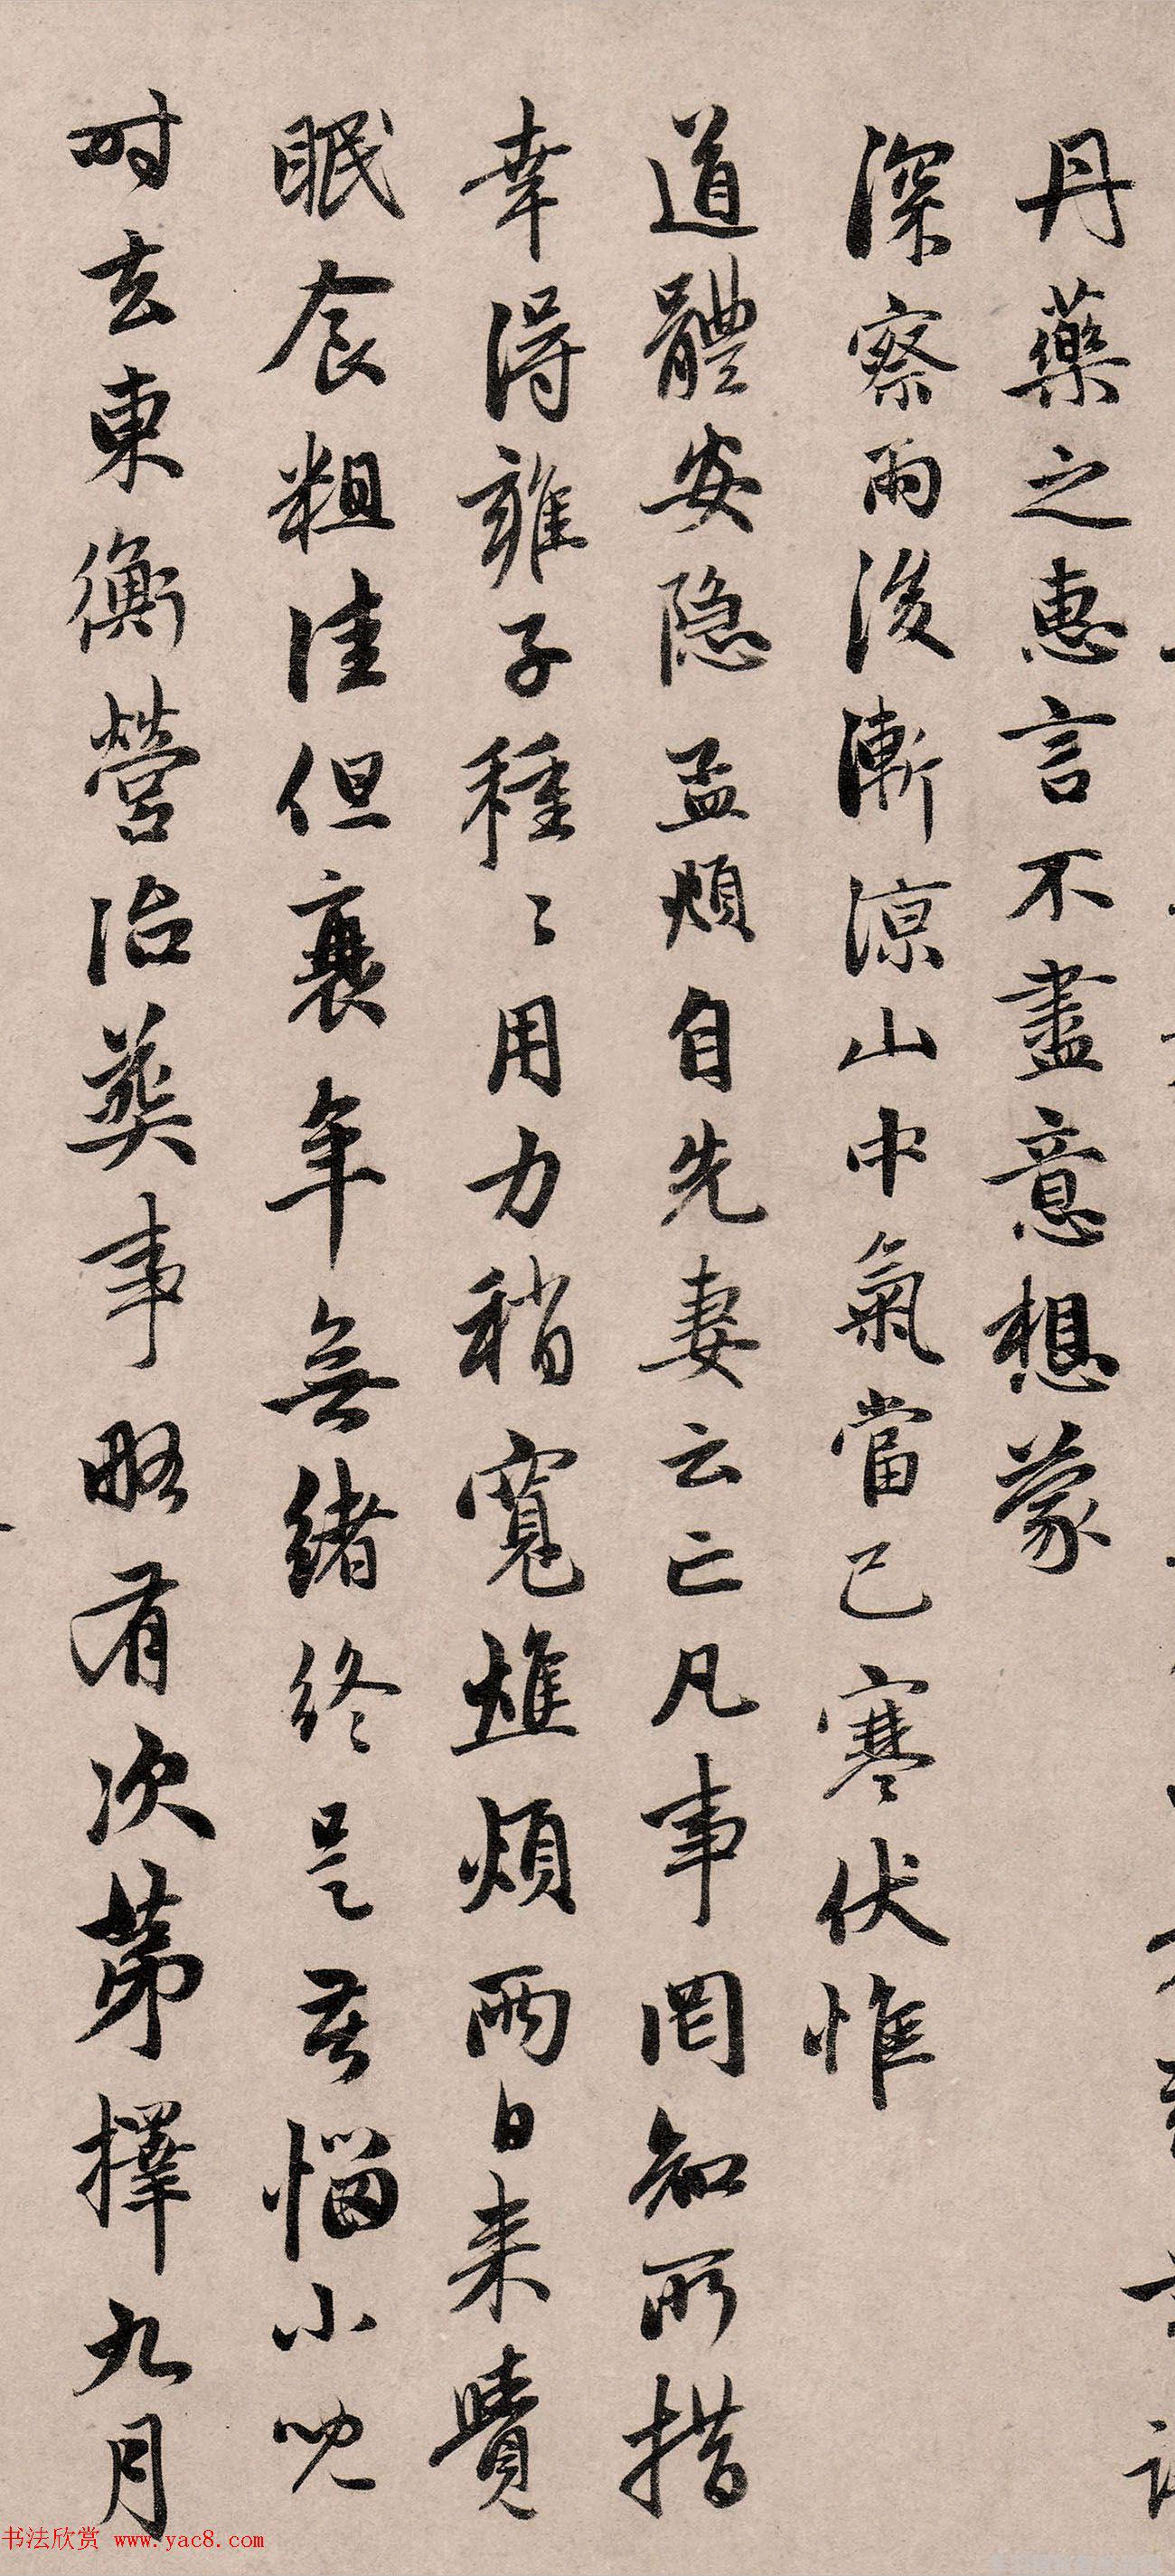 丹藥之惠言不盡意想蒙
深察雨後漸涼山中氣當已寒伏惟
道體安隐孟頫自先妻云亡凡事罔知所措
幸得雍子種〻用力稍寬憔煩兩日来覺
眠食粗佳但衰年無緒終是苦惱小兒
时去東衡營治葬事略有次苐擇九月
书法欣赏 www.yac8.com